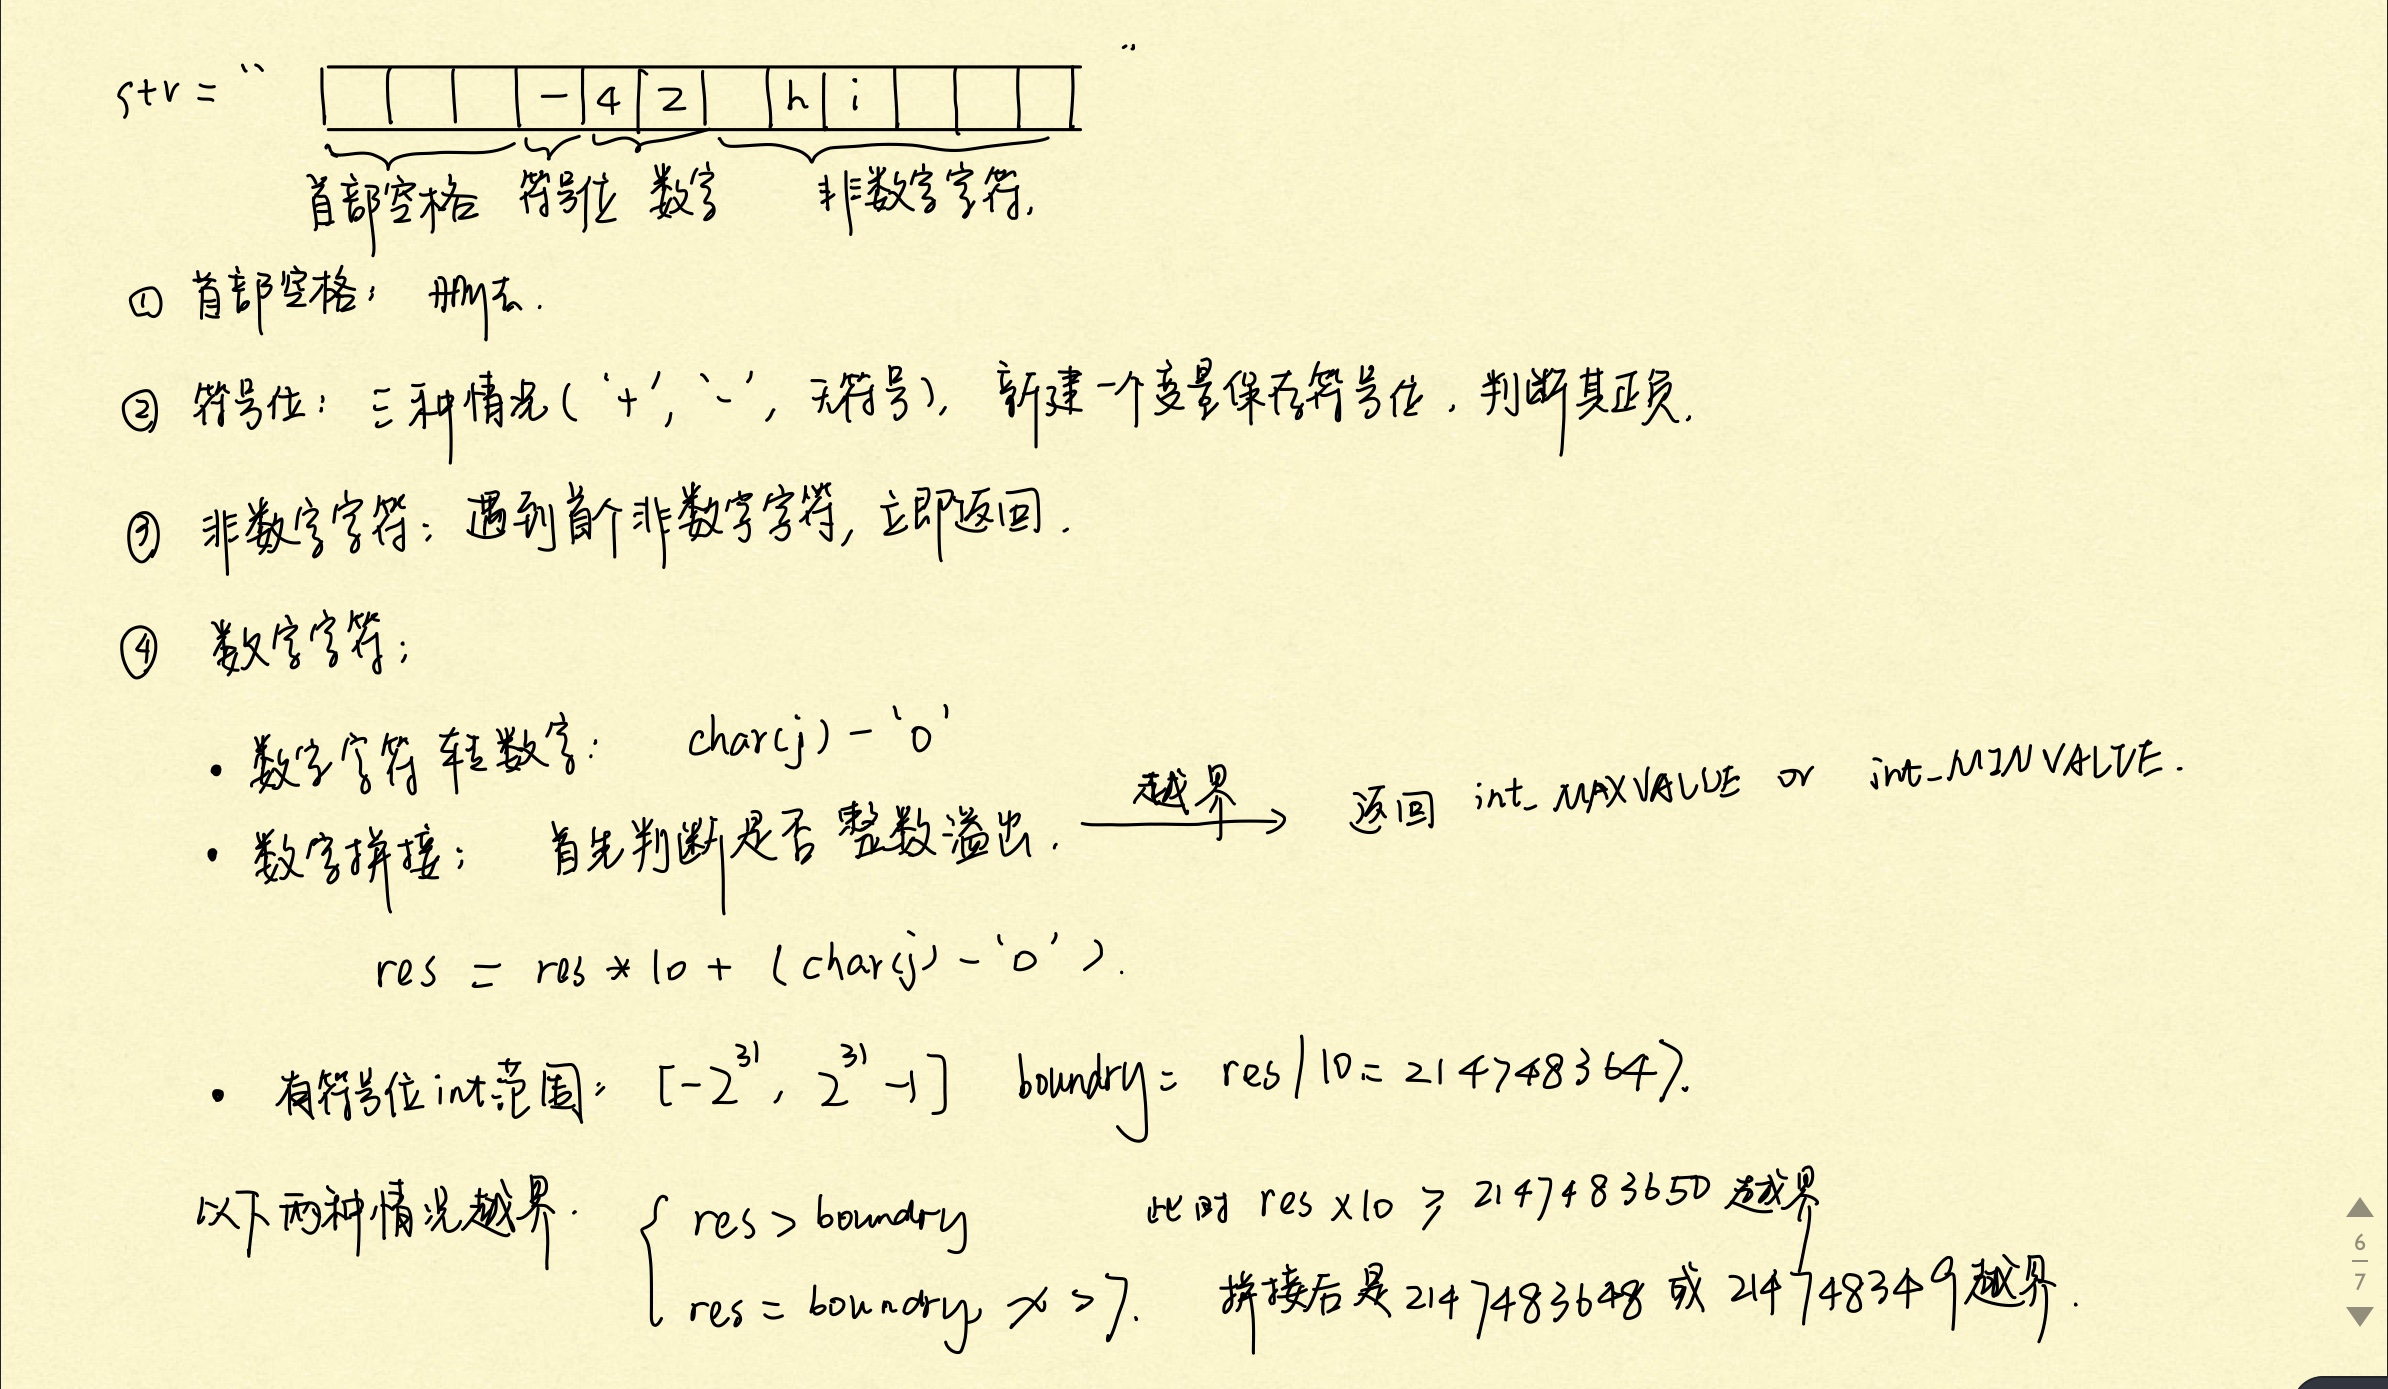 str = " - 4 2 h i "
首部空格 符号位 数字 非数字字符.
① 首部空格: 删去.
② 符号位: 三种情况('+', '-', 无符号), 新建一个变量保存符号位, 判断其正负.
③ 非数字字符: 遇到首个非数字字符, 立即返回.
④ 数字字符:
• 数字字符转数字: char(j) - '0'
• 数字拼接: 首先判断是否整数溢出. 越界 → 返回 int_MAXVALUE or int_MINVALUE.
res = res * 10 + (char(j) - '0').
• 有符号位int范围: [-2³¹, 2³¹-1] boundry = res/10 = 2147483647.
以下两种情况越界. { res > boundry 此时 res × 10 ≥ 2147483650 越界
res = boundry, x > 7. 拼接后是 2147483648 或 214748349 越界.
6
7